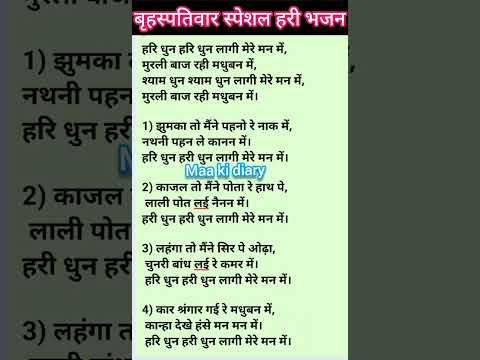 बृहस्पतिवार स्पेशल हरी भजन
हरि धुन हरि धुन लागी मेरे मन में,
मुरली बाज रही मधुबन में,
श्याम धुन श्याम धुन लागी मेरे मन में,
मुरली बाज रही मधुबन में।
1) झुमका तो मैंने पहनो रे नाक में,
नथनी पहन ले कानन में।
हरि धुन हरी धुन लागी मेरे मन में।
Maa ki diary
2) काजल तो मैंने पोता रे हाथ पे,
लाली पोत लई नैनन में।
हरी धुन हरी धुन लागी मेरे मन में।
3) लहंगा तो मैंने सिर पे ओढ़ा,
चुनरी बांध लई रे कमर में।
हरि धुन हरी धुन लागी मेरे मन में।
4) कार श्रंगार गई रे मधुबन में,
कान्हा देखे हंसे मन मन में।
हरि धुन हरी धुन लागी मेरे मन में।